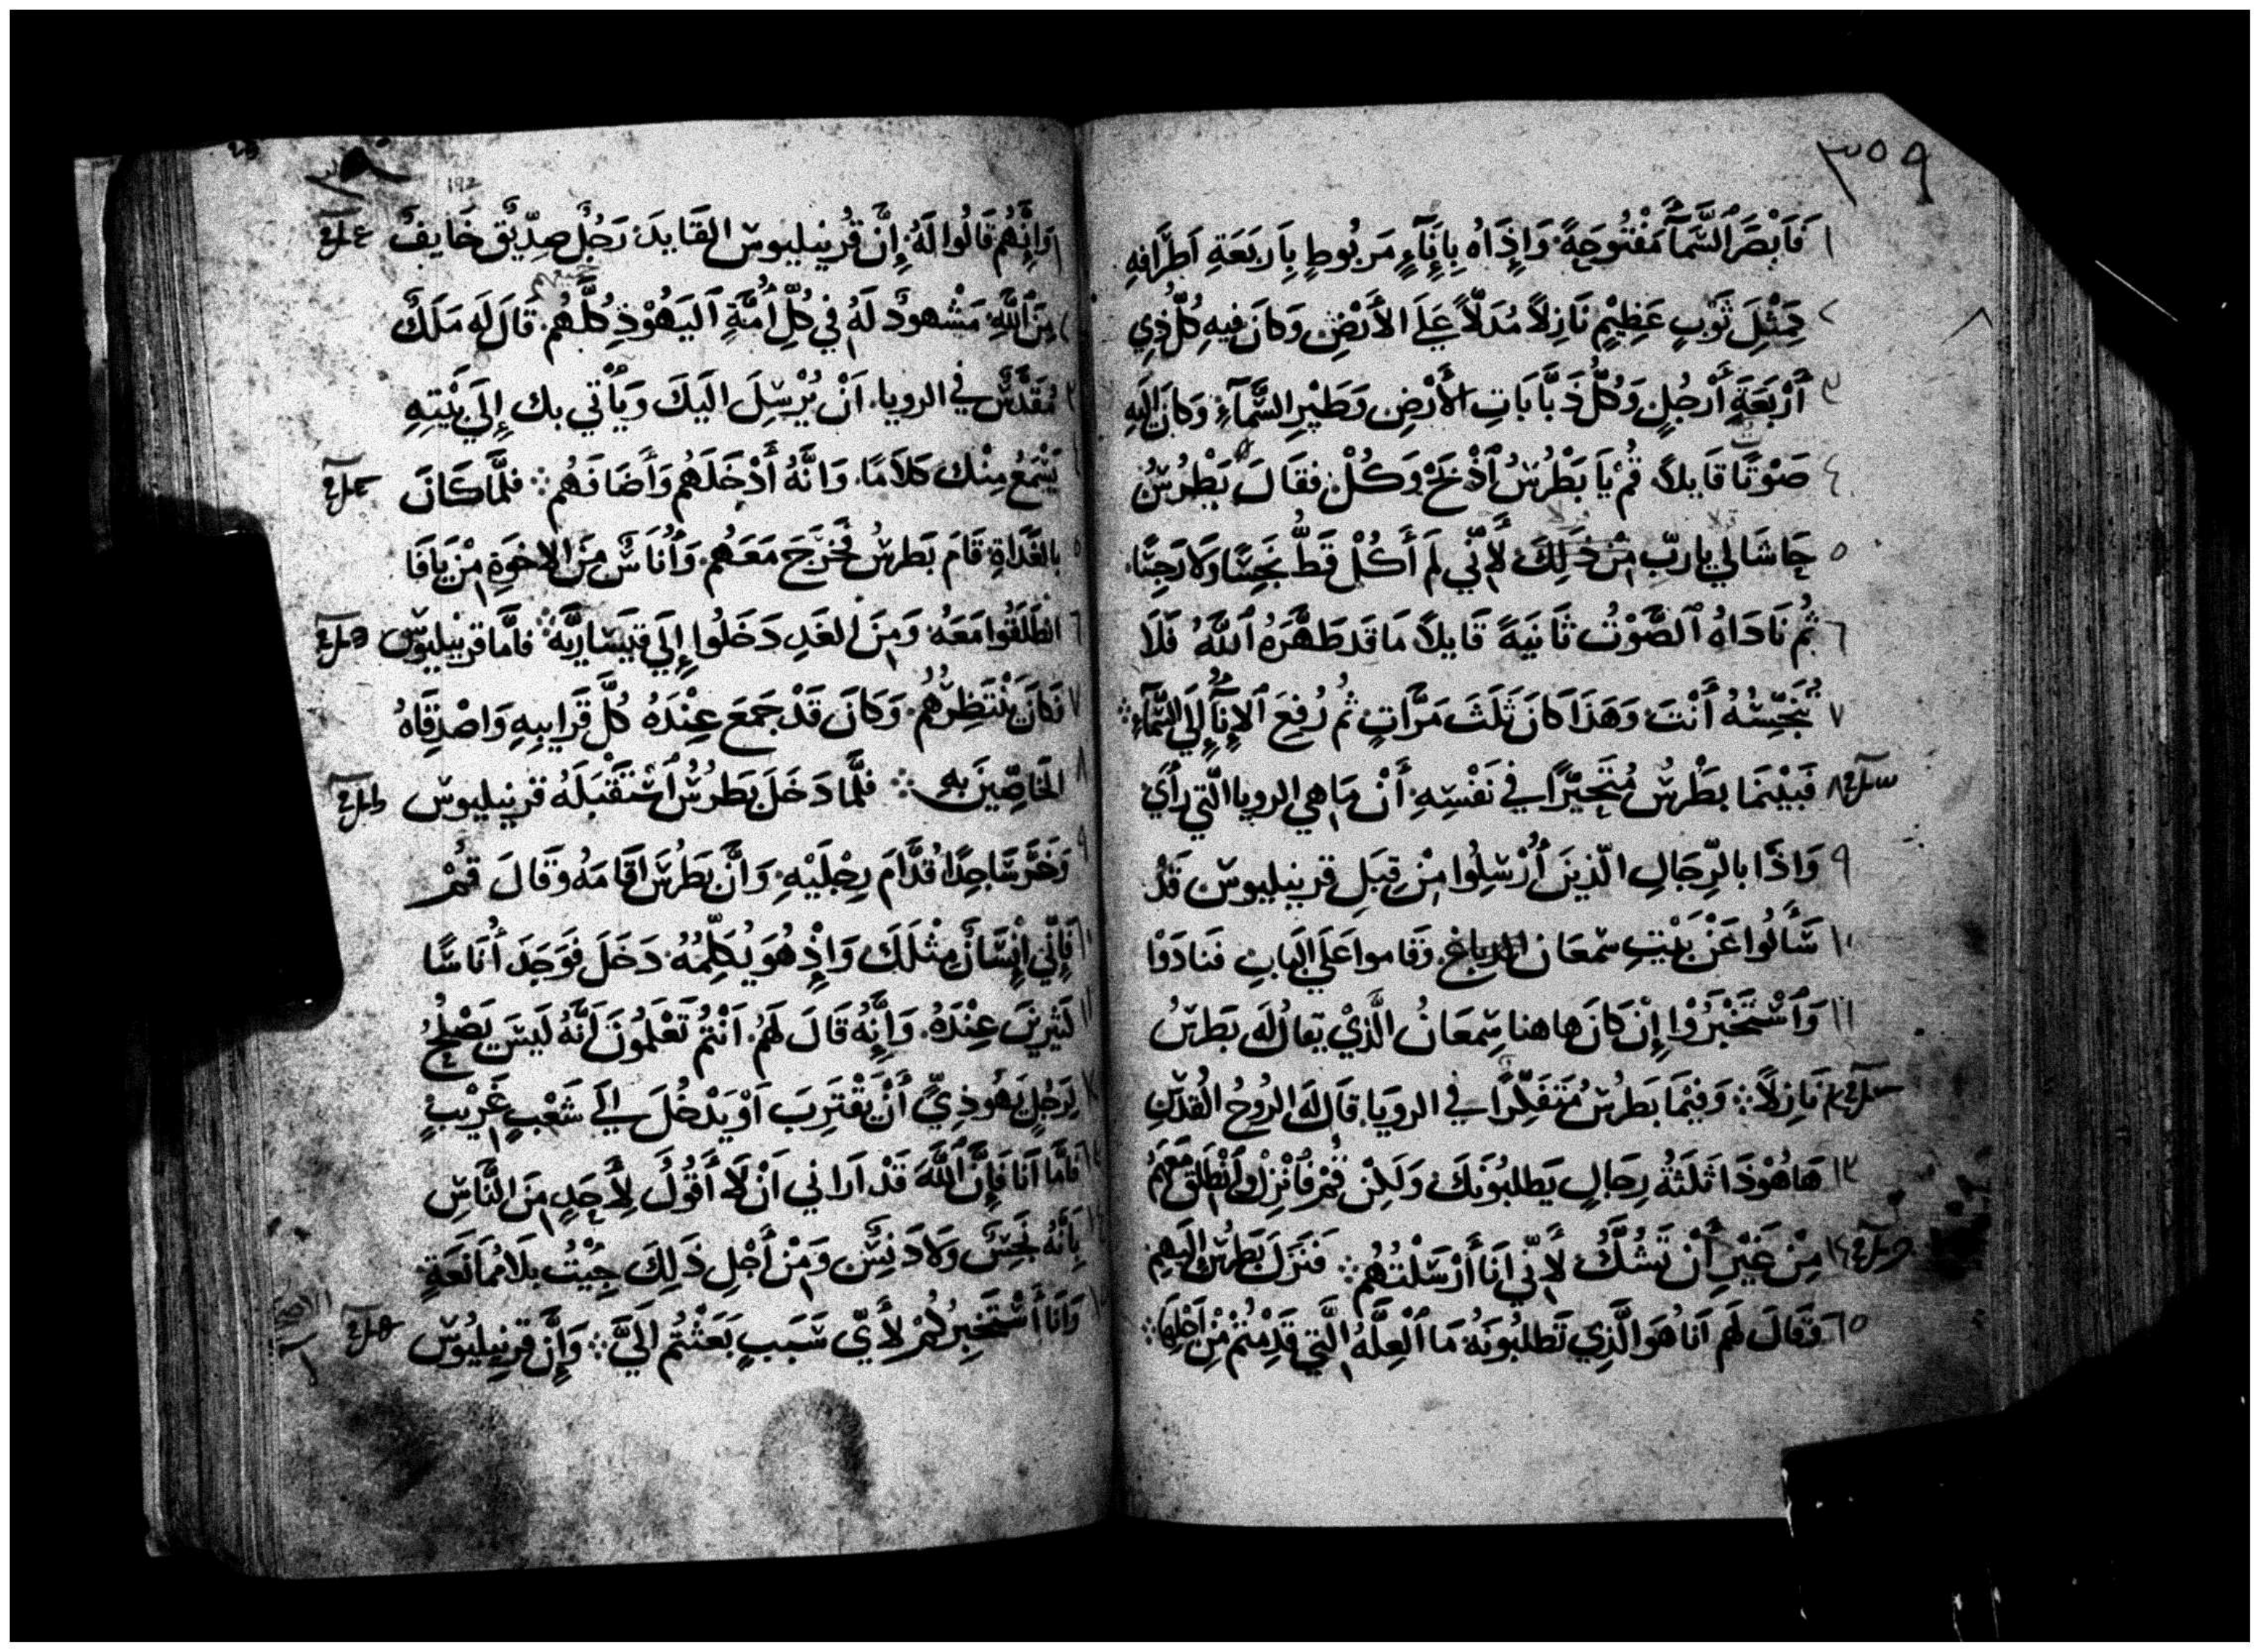 ٣٥٩
١ فَاَبْصَرَ السَّمَآ مَفْتُوحَةً وَإِذَاهُ بِإِنَآءٍ مَربُوطٍ بِاَربَعَةِ اَطرَافِهِ
٢ كَمِثْلِ ثَوْبٍ عَظِيْمٍ نَازِلاً مُدَلاًّ عَلَى الأَرْضِ وَكانَ فِيهِ كُلُّ ذِي
٣ أَرْبَعَةِ أَرْجُلٍ وَكُلُّ دَبَّابَاتِ الأَرْضِ وَطَيْرِ السَّمَآءِ وَكانَ إِلَيهِ
٤ صَوْتًا قَايلاً قُمْ يَا بَطْرُسُ اَذْبَحْ وَكُلْ فَقَالَ بَطْرُسُ
٥ حَاشَا لِي يا ربّ مِنْ ذَلِكَ لأَنّي لَمَ أَكُلْ قَطُّ نَجِسًا وَلاَ رَجِسًا
٦ ثُم نَادَاهُ الصَّوْتُ ثَانيَةً قَايلاً مَا قَد طَهَّرَهُ اَللَّهُ فَلَا
٧ تُنَجِّسْهُ أَنْتَ وَهَذَا كَانَ ثَلثَ مَرَّاتٍ ثُم رُفِعَ الإِنَآ إِلَي السَّمَآءِ
٨ فَبَيْنَمَا بَطْرسُ مُتَحَيِّرًا فِي نَفْسِهِ أَنْ مَا هِي الرويا الَّتي رأَيَ
٩ وَاذَا بالرِّجَالِ الّذينَ أُرْسِلُوا مِنْ قِبَلِ قرنيليوس قَدْ
١٠ سَأَلُوا عَنْ بَيْتِ سمْعَان الدباغ وَقاموا عَلَي البَابِ فَنادَوْا
١١ وَاَسْتَخْبَرُوْا إِنْ كانَ هاهنا سِمعَانُ الَّذِيْ يقالُ لَه بَطرسُ
١٢ نَازِلاً وَفيْمَا بَطرُس مُتَفَكِّرًا فِي الرويَا قَالَ لَه الرُوحُ القُدسِ
١٣ هَاهُوْذَا ثَلَثَةُ رِجَالٍ يَطلبُونَكَ وَلَكِنْ قُمْ فَاَنْزِلْ وَاَنْطَلِقْ مَعَهُمْ
١٤ مِنْ غَيْرِ أَنْ تَشُكَّ لأَنّي أنَا أَرْسَلْتُهُم فَنَزَلَ بَطرُسُ إِلَيهِم
١٥ وَقَالَ لَهم اَنا هُوَ الَّذِي تَطلُبُونَهُ مَا اَلعِلَّهُ الَّتِي قَدِمْتُمْ مِنْ اَجْلِهَا
192
١ وَإِنَّهُم قَالُوا لَهُ إِنَّ قُرنيليوس القَايدَ رَجُلٌ صِدّيقٌ خَايفٌ
٢ مِنَ اَللَّهِ مَشْهودٌ لَهُ فِي كُلِّ أُمَّةِ اَليَهُوْذِ كُلَّهُم قَالَ لَه مَلَكٌ
٣ مُقَدَّسٌ فِي الرويا اَنْ يُرْسِلَ الَيكَ وَيَأْتي بك إِلَي بَيْتِهِ
٤ يَسْمَعُ مِنْكَ كلاَمًا وَانَّهُ أَدْخَلَهُم وَأَضَافَهُم فلَمَّا كَانَ
٥ بالغَدَاةِ قَامَ بَطرسُ فَخَرَجَ مَعَهُم وَأُنَاسٌ مِنَ الاخوَةِ مِنْ يَافَا
٦ انطَلَقُوا مَعَهُ وَمِنَ الغَدِ دَخَلُوا إِلَي قيسَاريَّه فامَّا قرنيليوس
٧ فكَانَ يَنْتَظِرُهُم وَكانَ قَدْ جَمعَ عِنْدَهُ كُلَّ قَرَايبِهِ وَاصْدِقَاهُ
٨ الخَاصِّيْنَ بِهِ فلَمَّا دَخَلَ بَطرُسُ أَسْتَقْبَلَهُ قرنيليوس
٩ وَخَرَّ سَاجِدًا قُدَّامَ رِجْلَيْهِ وَانَّ بَطرُسَ اَقَامَهُ وَقَالَ قُمْ
١٠ فَإِنّي إِنْسَانٌ مِثْلَكَ وَإِذْ هُوَ يُكَلِّمُهُ دَخَلَ فَوَجَدَ أُنَاسًا
١١ كَثيرينَ عِنْدَهُ وَإِنَّهُ قَالَ لَهُم اَنْتُمْ تَعْلَمُونَ اَنَّهُ لَيسَ يَصْلُحُ
١٢ لِرَجُلٍ يَهُوذِيٍّ أَنْ يَقْتَرِبَ اَوْ يَدْخُلَ الَي شَعْبٍ غَرِيْبٍ
١٣ فَامَّا اَنَا فَإِنَّ اَللَّهَ قَدْ اَرَاني اَنْ لاَ أَقُولُ لِأَحَدٍ مِنَ النَّاسِ
١٤ بِأَنَّهُ نَجِسٌ وَلاَ دَنِسٌ وَمِنْ أَجْلِ ذَلِكَ جِيْتُ بلاَ مُمَانَعَةٍ
١٥ وَانَا أَسْتَخْبِرُكُمْ لأَيّ سَبَبٍ بَعَثْتُم الَيَّ وَإِنَّ قرنِيليُوس